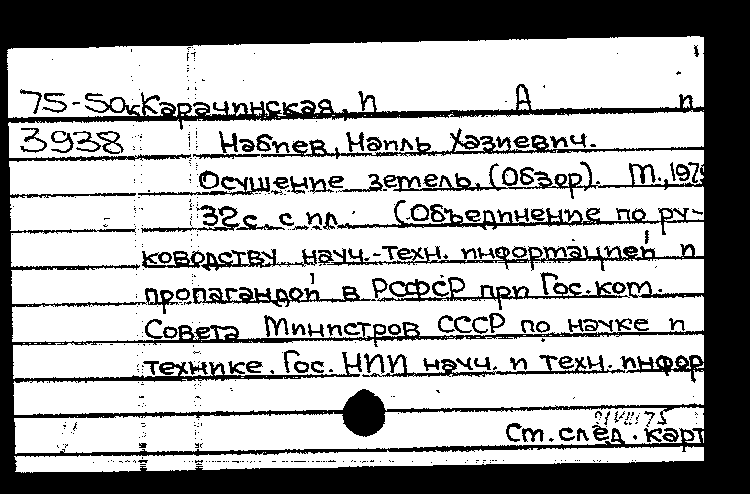 75-50к Карачинская, И А п
3938 Набиев, Наиль Хазиевич.
Осушение земель. (Обзор). М., 197
32с. с ил. (Объединение по ру-
ководству науч.-техн. информацией и
пропагандой в РСФСР при Гос. ком.
Совета Министров СССР по науке и
технике. Гос. НИИ науч. и техн. инфор
См. след. карт